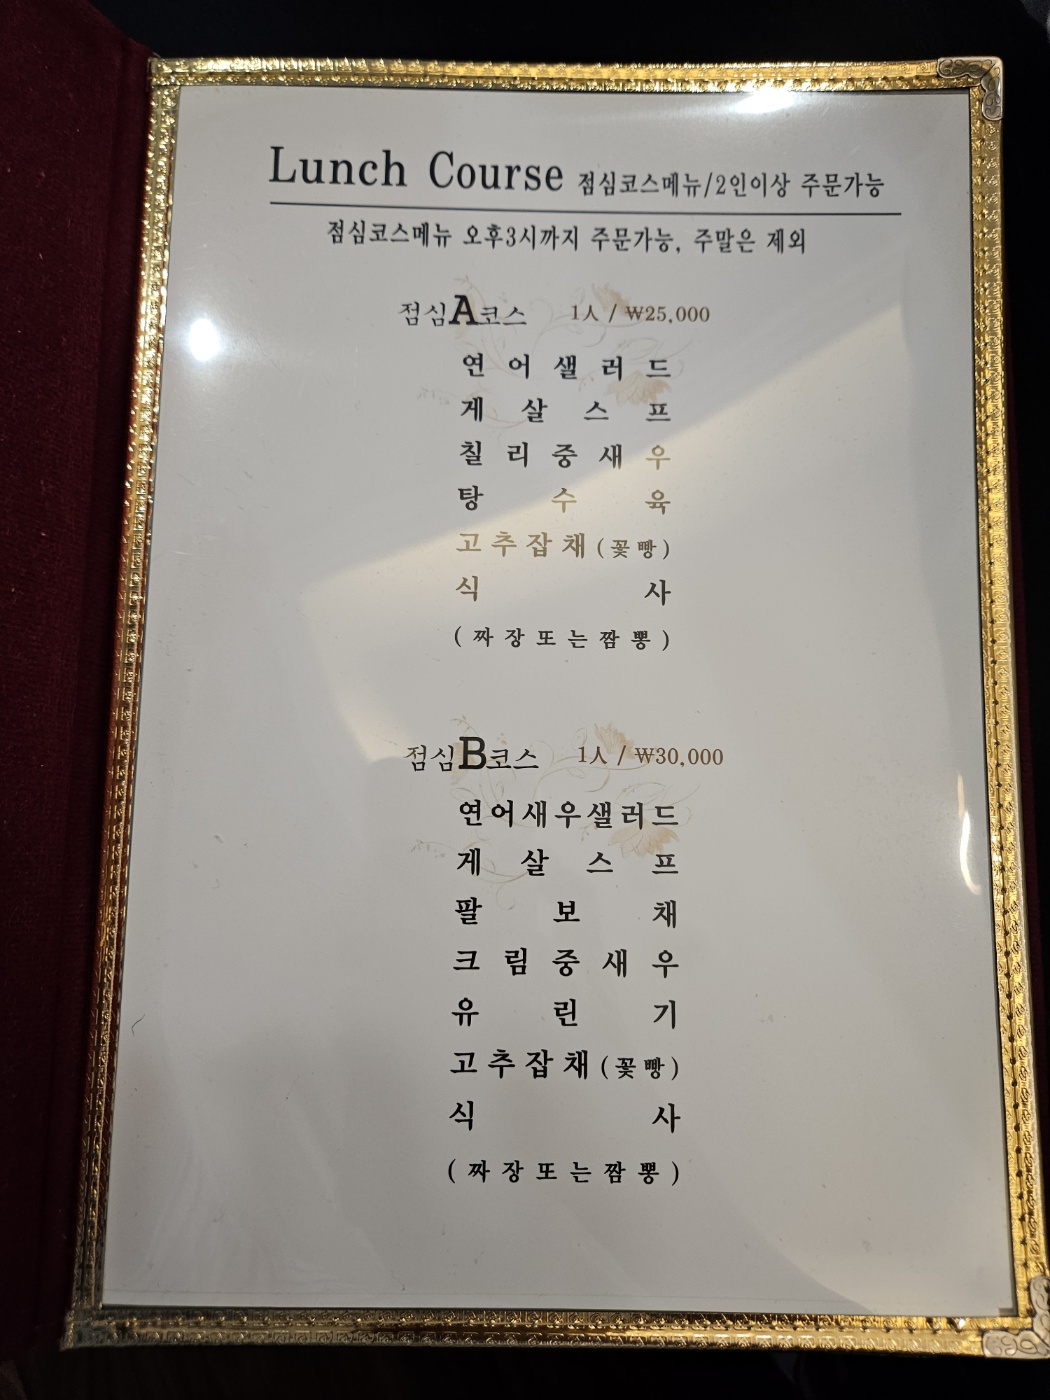 Lunch Course 점심코스메뉴/2인이상 주문가능
점심코스메뉴 오후3시까지 주문가능, 주말은 제외
점심A코스 1人 / ₩25,000
연어샐러드
게살스프
칠리중새우
탕수육
고추잡채(꽃빵)
식사
(짜장또는짬뽕)
점심B코스 1人 / ₩30,000
연어새우샐러드
게살스프
팔보채
크림중새우
유린기
고추잡채(꽃빵)
식사
(짜장또는짬뽕)